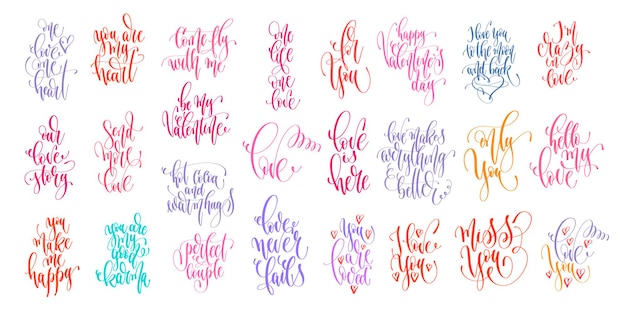 one
love
one
heart
you are
my
heart
Come fly
with me
be my
Valentine
one
life
one
love
for
You
happy
Valentine's
day
I love you
to the moon
and back
I'm
crazy
in
love
our
love
story
Send
more
love
hot cocoa
and
warm hugs
love
love
is
here
love makes
everything
better
only
You
hello
my
love
you
make
me
happy
you are
my
good
karma
perfect
couple
love
never
fails
You
are
loved
I love
You
miss
You
I
love
You